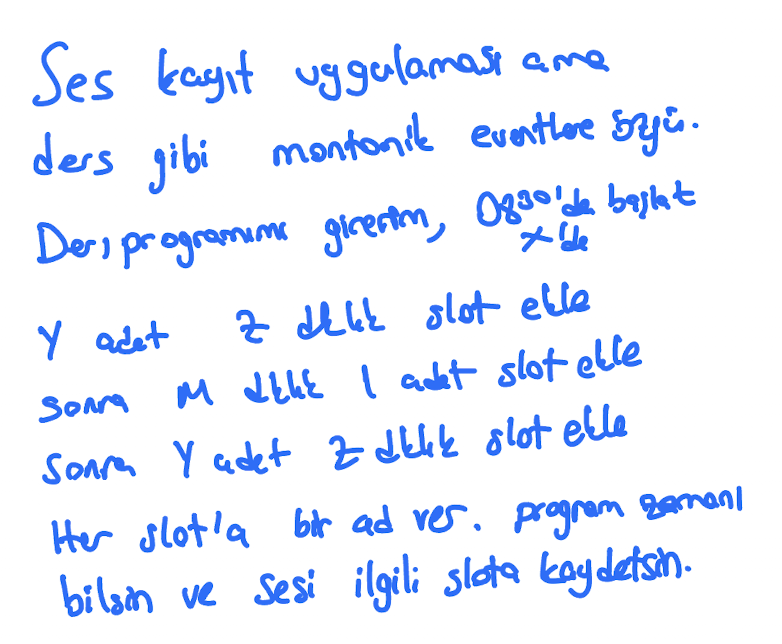 Ses kayıt uygulaması ama
ders gibi montonik eventlere özgü.
Ders programımı girerim, 0830'da başlat
X'de
Y adet Z dklık slot ekle
sonra M dklık 1 adet slot ekle
sonra Y adet Z dklık slot ekle
Her slot'a bir ad ver. program zamanı
bilsin ve sesi ilgili slota kaydetsin.